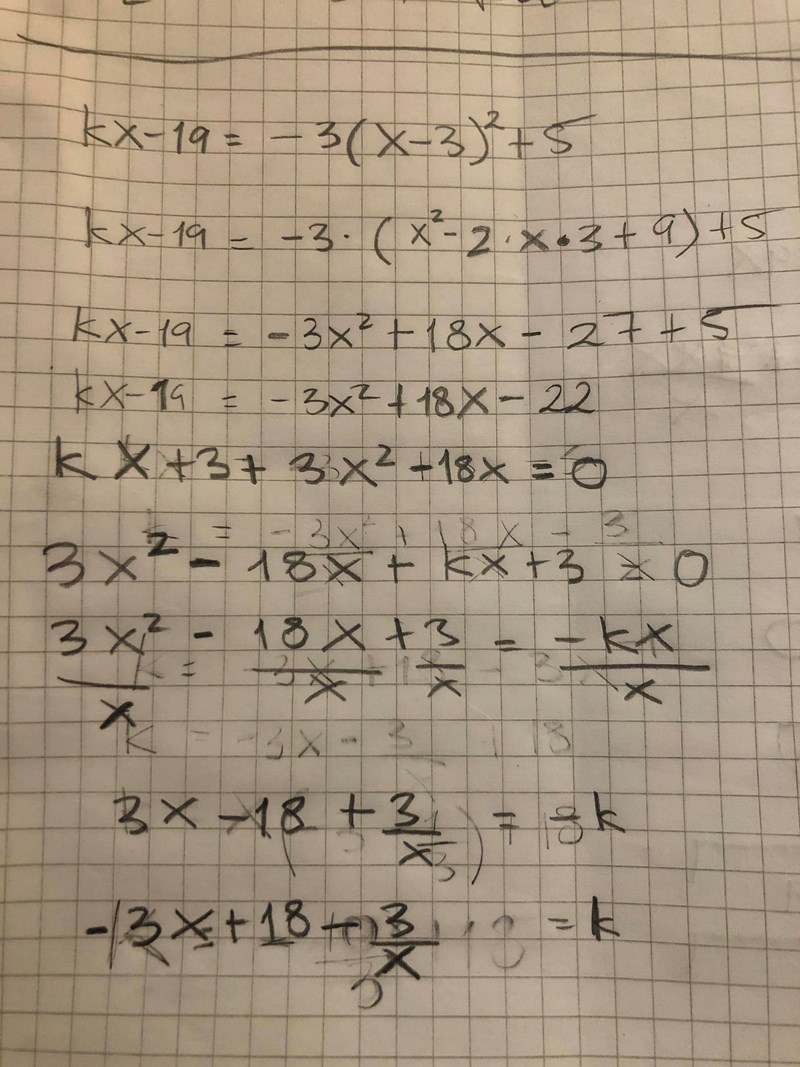 kx-19 = -3(x-3)²+5
kx-19 = -3·(x²-2·x·3+9)+5
kx-19 = -3x²+18x-27+5
kx-19 = -3x²+18x-22
kx+3+3x²-18x=0
3x²-18x+kx+3=0
3x²/x - 18x/x + 3/x = -kx/x
3x-18+3/x = -k
-3x+18-3/x = k